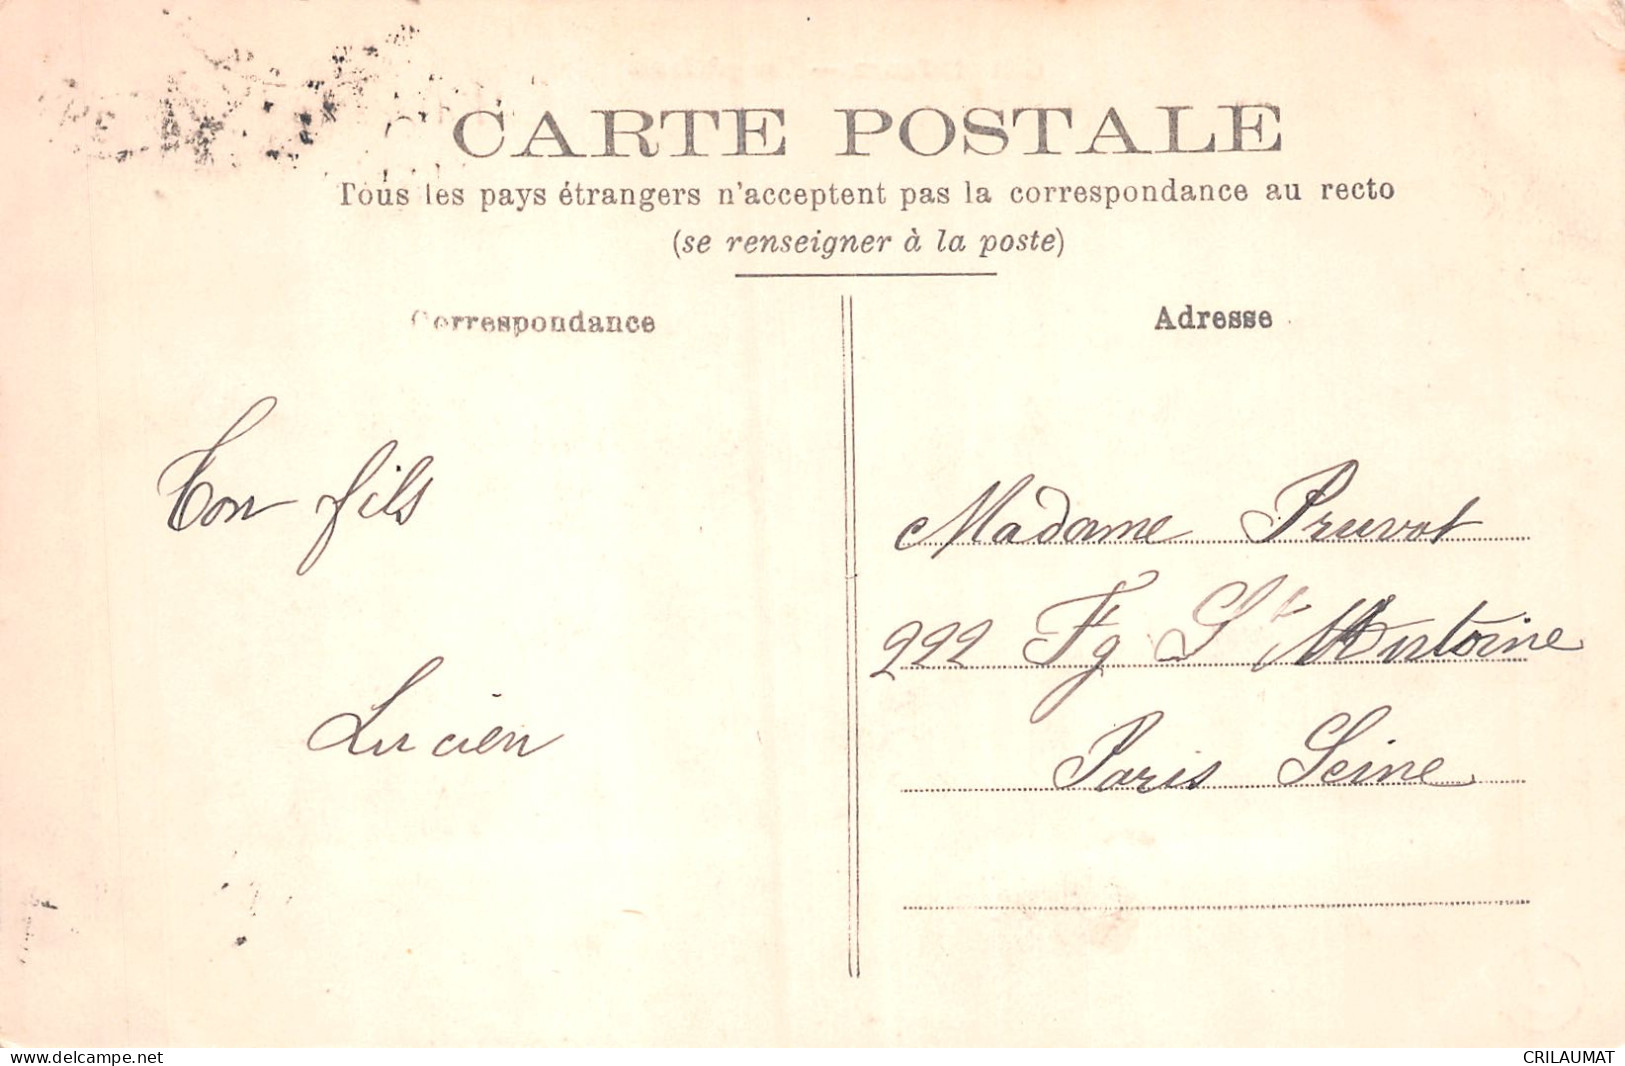 CARTE POSTALE
Tous les pays étrangers n'acceptent pas la correspondance au recto
(se renseigner à la poste)
Correspondance
Adresse
Ton fils
Lucien
Madame Pruvot
222 Fg St Antoine
Paris Seine
www.delcampe.net
CRILAUMAT